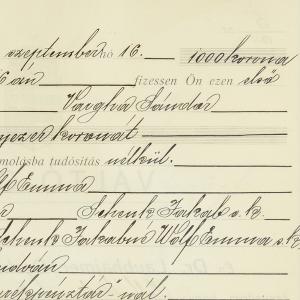 szeptember hó 16. 1000 korona
6 án fizessen Ön ezen első
Vargha Sándor
ezer koronát
molásba tudósítás nélkül.
lf Emma
Schenk Jakab s. k.
Schenk Jakabné Wolf Emma s. k.
nál.